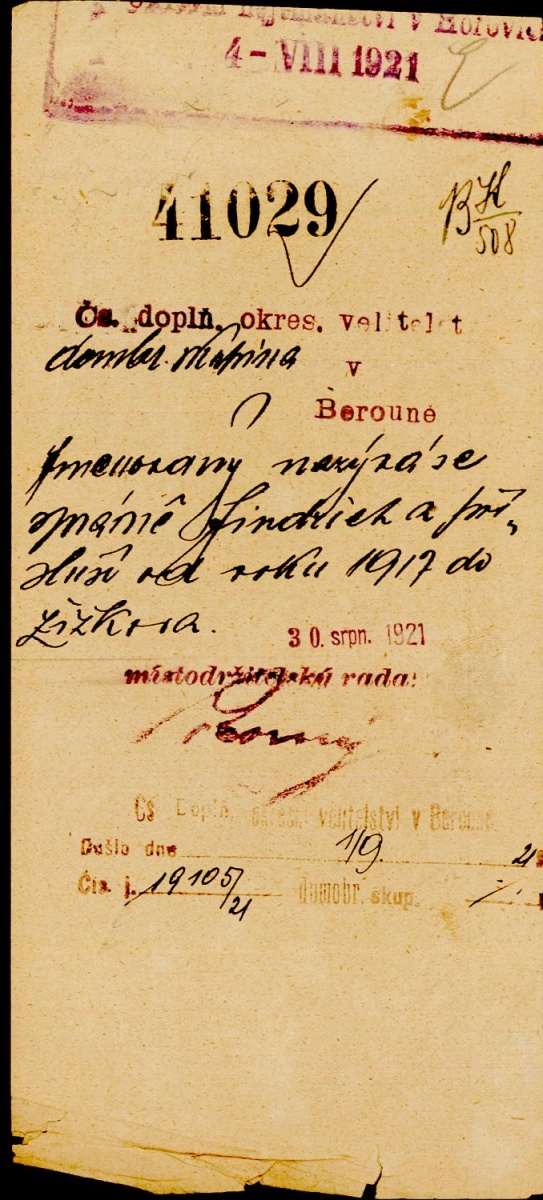 v Hořovicích
4 - VIII 1921
41029
508
Čs. doplň. okres. velitelst
domobr. skupina
v
Berouně
Jmenovaný nazývá se
správně Jindřich a pří„
sluší od roku 1917 do
Žižkova.
30. srpn. 1921
místodržitelský rada:
Čs. Doplň. okresní velitelství v Berouně
Došlo dne 1/9. 21
Čís. j. 19105/21 domobr. skup.